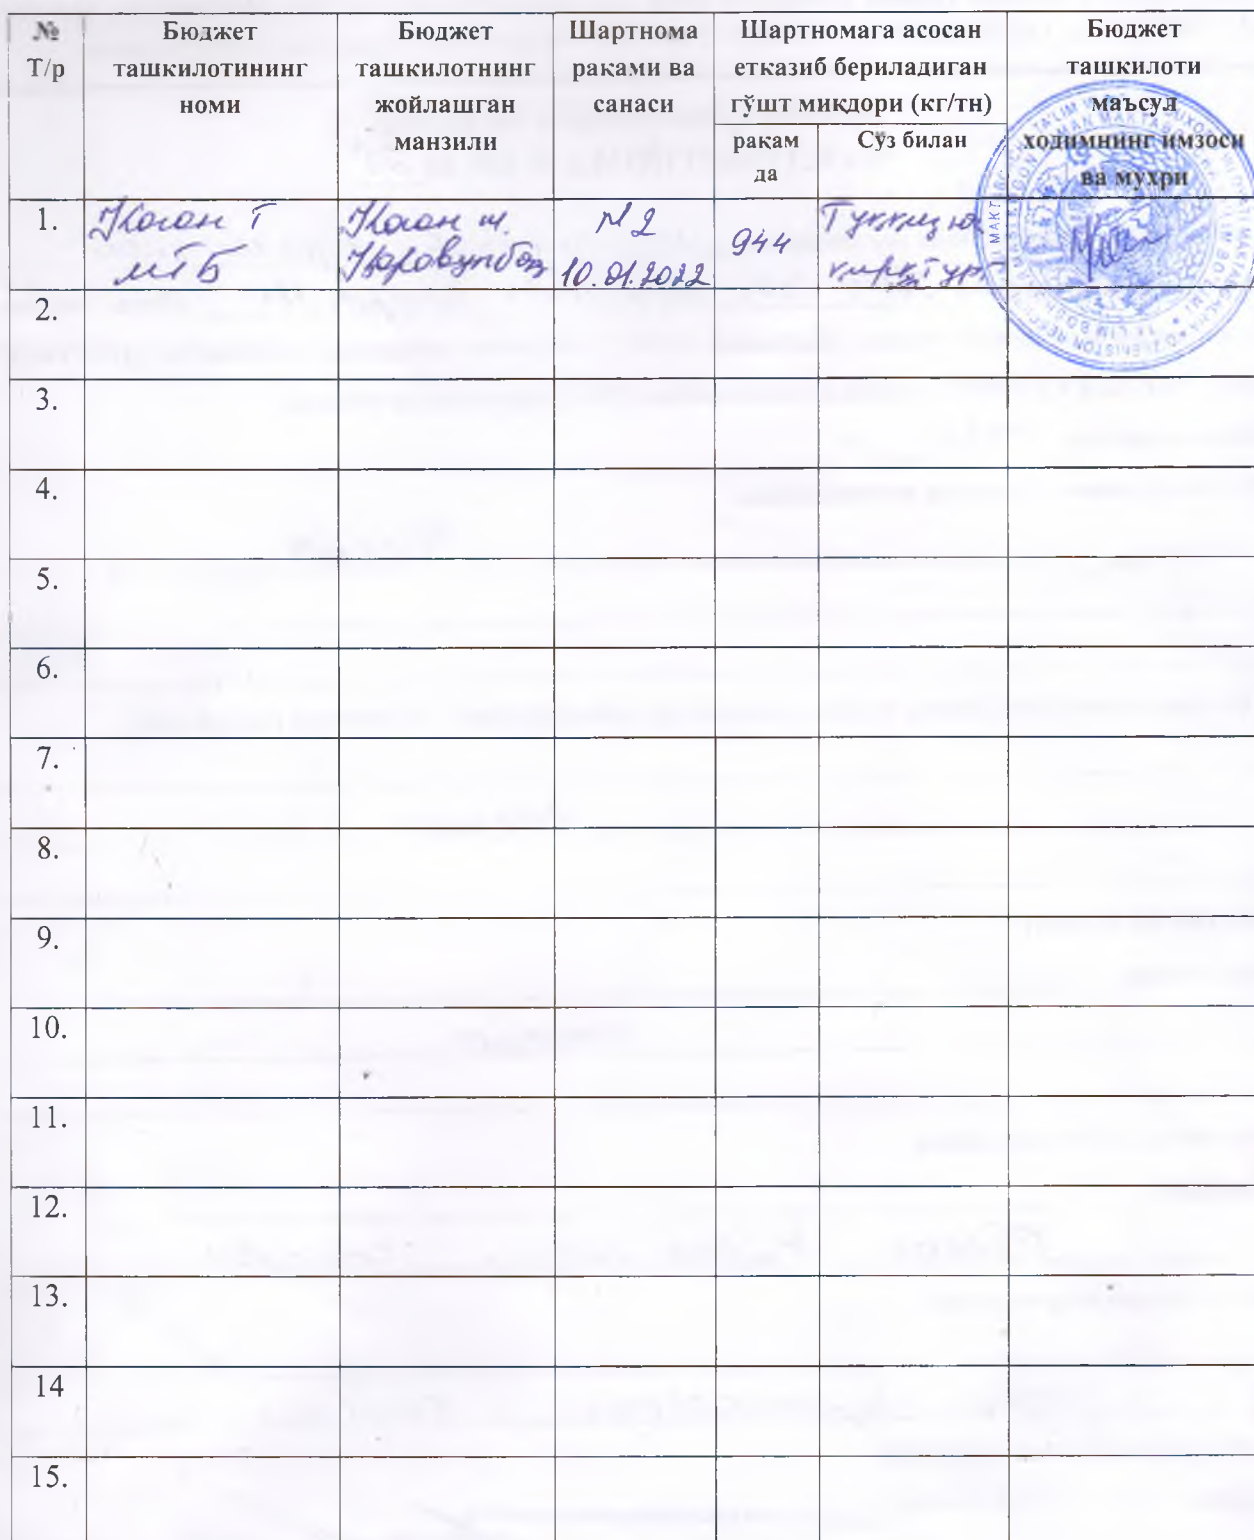 №
Т/р
Бюджет
ташкилотининг
номи
Бюджет
ташкилотнинг
жойлашган
манзили
Шартнома
рақами ва
санаси
Шартномага асосан
етказиб бериладиган
гўшт миқдори (кг/тн)
рақам
да
Сўз билан
Бюджет
ташкилоти
маъсул
ходимнинг имзоси
ва мухри
1.
Когон Т
МТБ
Когон ш.
№2
10.01.2022
944
Туққиз юз
қирқ тўрт
2.
3.
4.
5.
6.
7.
8.
9.
10.
11.
12.
13.
14
15.